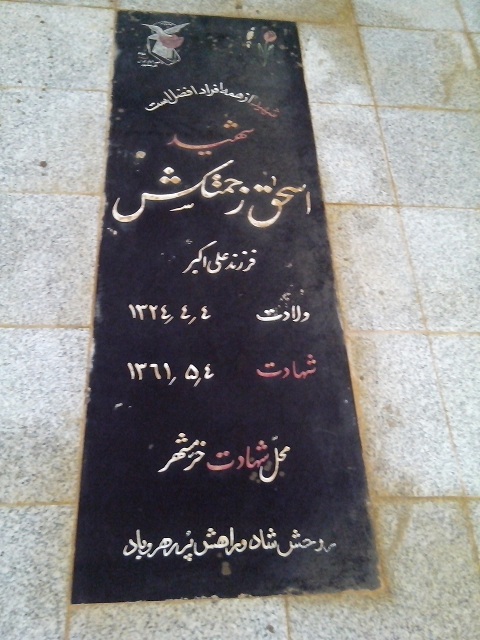 شهید از همه افراد افضل است
شهید
اسحق زحمتکش
فرزند علی اکبر
ولادت ١٣٢٤٫٤٫٤
شهادت ١٣٦١٫٥٫٤
محل شهادت خرمشهر
روحش شاد و راهش پر رهرو باد